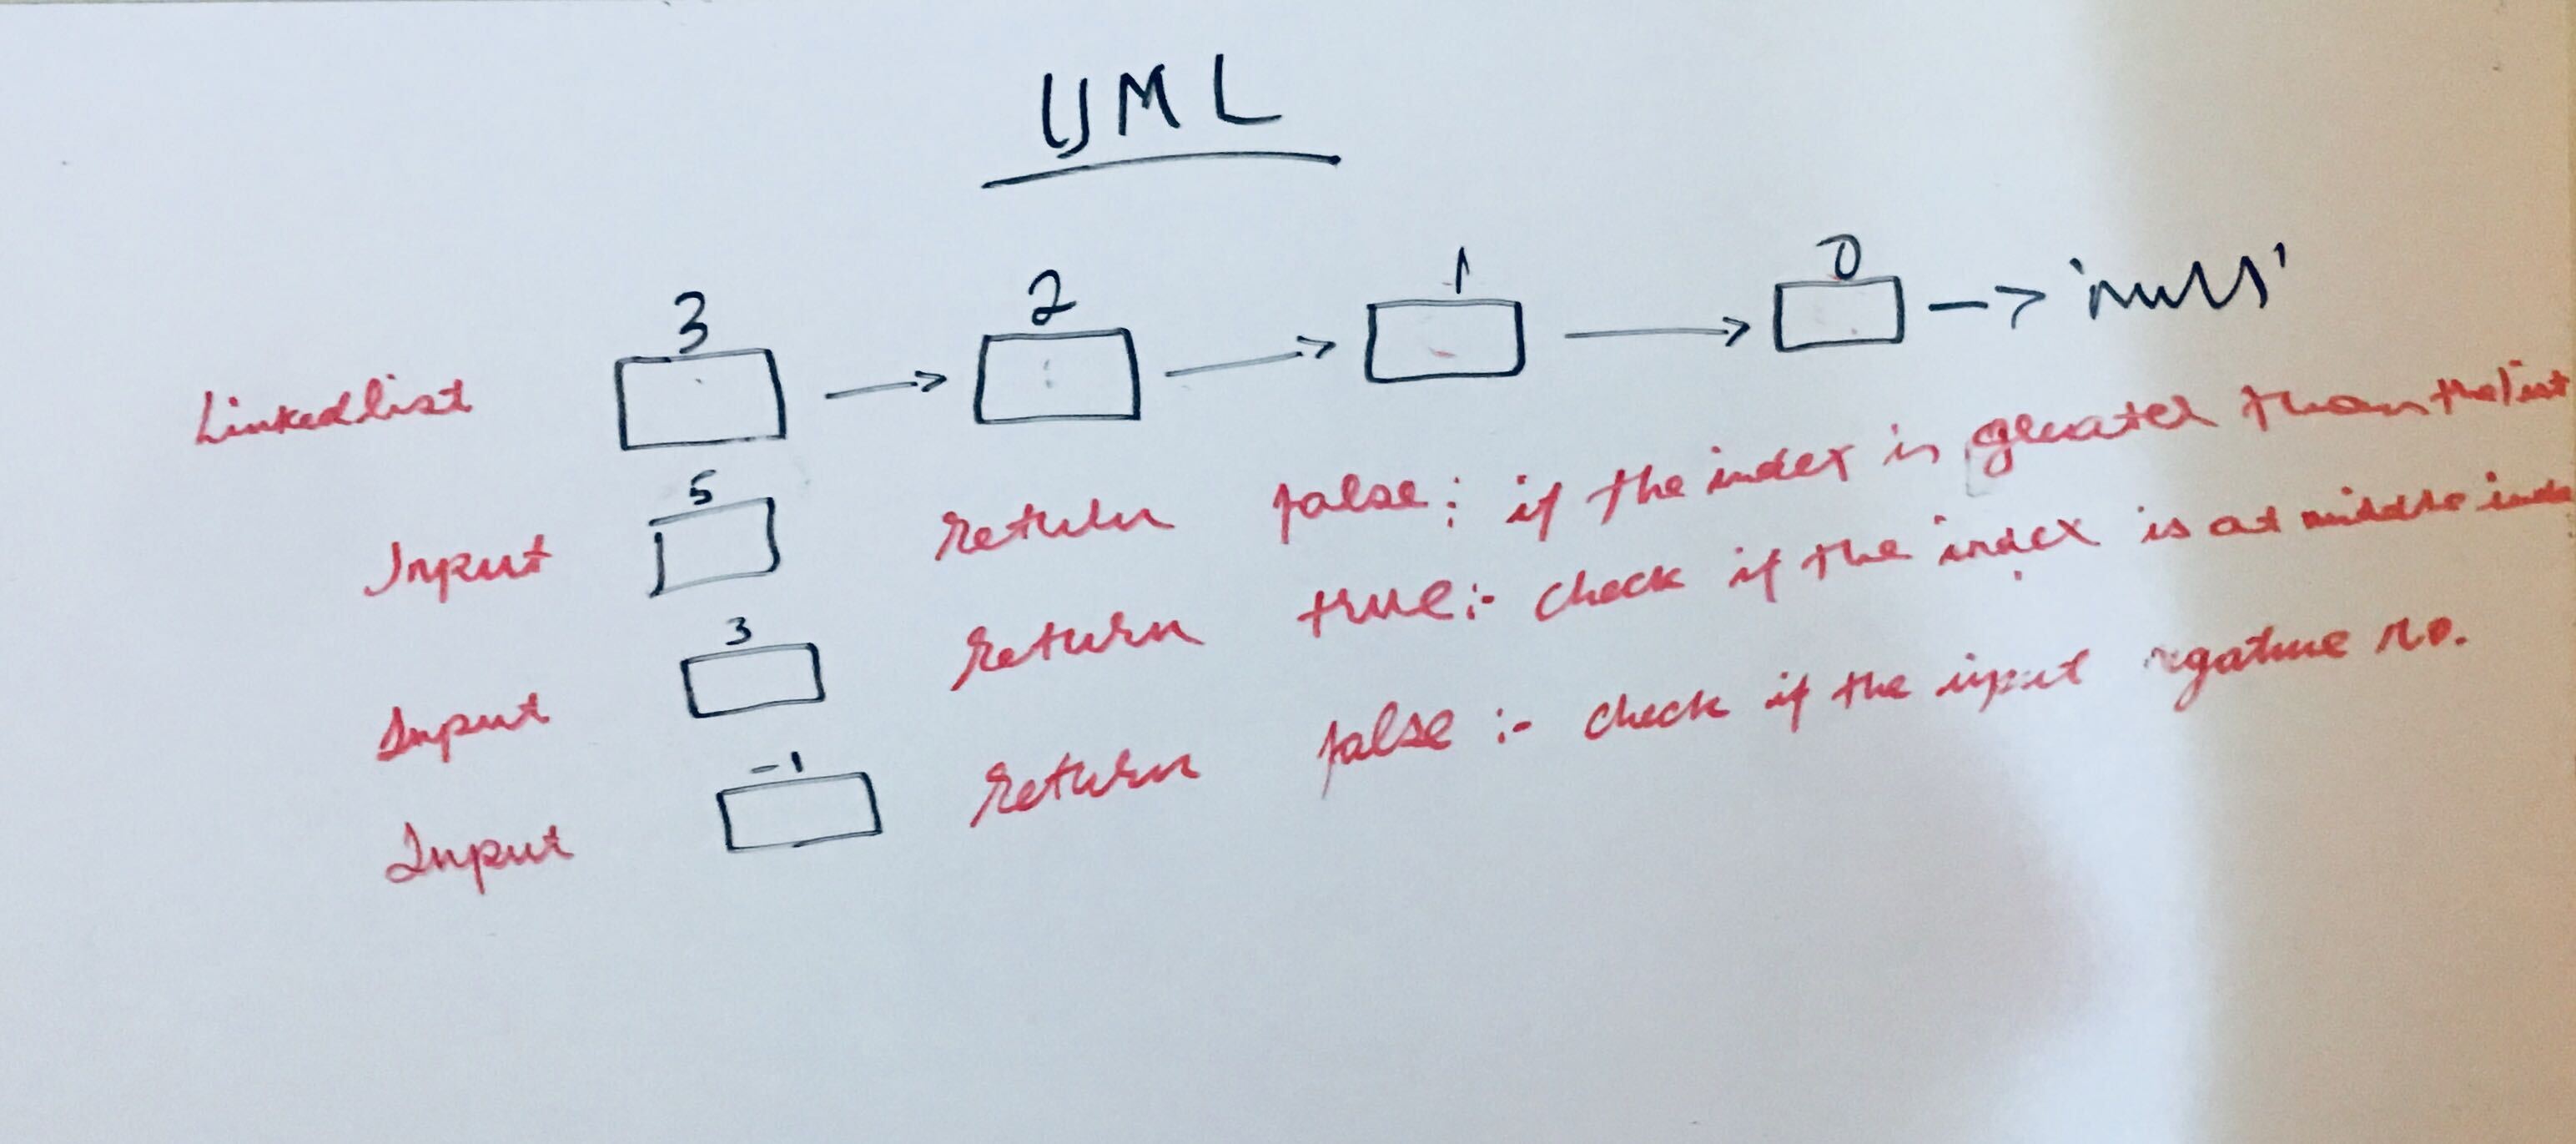 UML
3 2 1 0
Linkedlist → → → -> 'null'
5
Input return false: if the index is greater than the list
3
Input return true:- check if the index is at middle
-1
Input return false:- check if the input negative no.